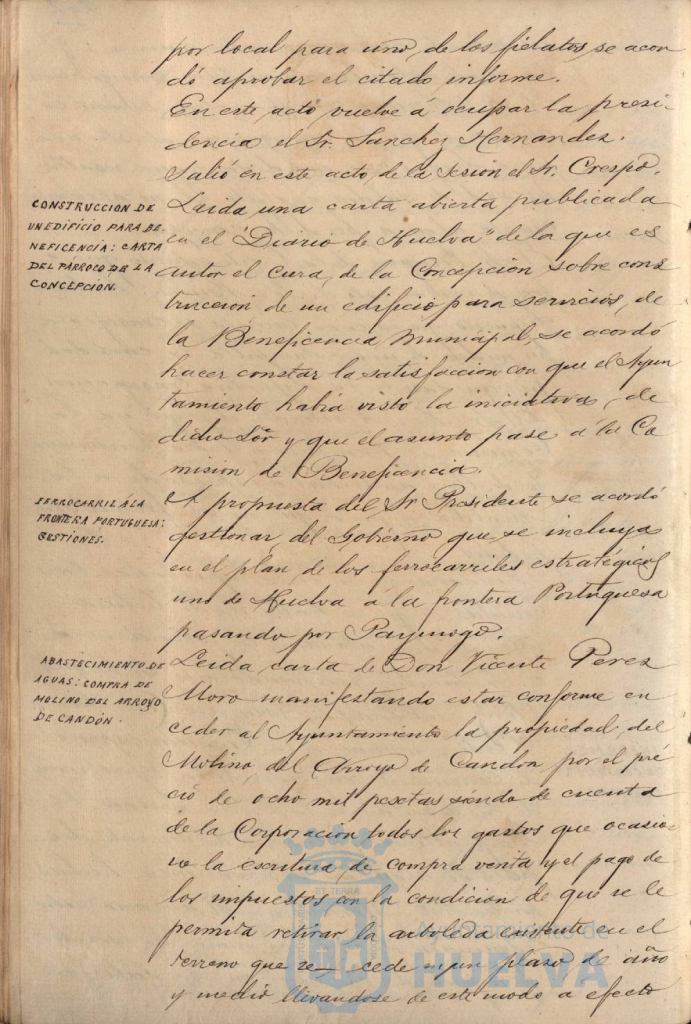 por local para uno de los fielatos, se acor
dó aprobar el citado informe.
En este acto vuelve á ocupar la presi-
dencia el Sr. Sanchez Hernandez.
Salió en este acto de la sesion el Sr. Crespo.
CONSTRUCCION DE
UN EDIFICIO PARA BE-
NEFICENCIA: CARTA
DEL PÁRROCO DE LA
CONCEPCIÓN.
Leida una carta abierta publicada
en el "Diario de Huelva" de la que es
autor el cura de la Concepcion sobre cons
truccion de un edificio para servicios de
la Beneficencia Municipal, se acordó
hacer constar la satisfaccion con que el Ayun
tamiento habia visto la iniciativa de
dicho Sor y que el asunto pase á la Co
mision de Beneficencia.
FERROCARRIL Á LA
FRONTERA PORTUGUESA:
GESTIONES.
A propuesta del Sr Presidente se acordó
gestionar del Gobierno que se incluya
en el plan de los ferrocarriles estratégicos
uno de Huelva á la frontera Portuguesa
pasando por Paymogo.
ABASTECIMIENTO DE
AGUAS: COMPRA DE
MOLINO DEL ARROYO
DE CANDÓN.
Leida carta de Don Vicente Perez
Moro manifestando estar conforme en
ceder al Ayuntamiento la propiedad del
Molino del Arroyo de Candon por el pré
cio de ocho mil pesetas siendo de cuenta
de la Corporacion todos los gastos que ocasio-
ne la escritura de compra venta y el pago de
los impuestos con la condicion de que se le
permita retirar la arboleda existente en el
terreno que se cede en un plazo de año
y medio llevandose de este modo a efecto
ET TERRA
HUELVA